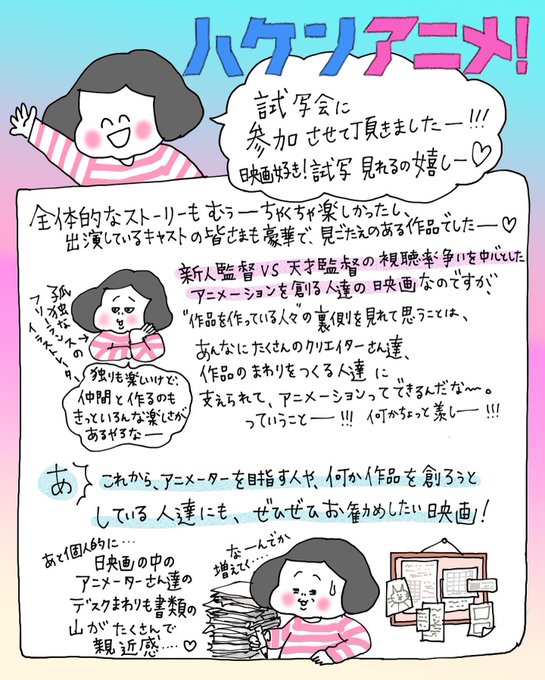 ハケンアニメ!
試写会に
参加させて頂きましたー!!!
映画好き!試写見れるの嬉しー♡
全体的なストーリーもむぅーーちゃくちゃ楽しかったし、
出演しているキャストの皆さまも豪華で、見ごたえのある作品でしたー♡
新人監督VS天才監督の視聴率争いを中心とした
アニメーションを創る人達の映画なのですが、
"作品を作っている人々"の裏側を見れて思うことは、
あんなにたくさんのクリエイターさん達、
作品のまわりをつくる人達に
支えられて、アニメーションってできるんだな〜。
っていうことー!!! 何かちょっと羨しー!!!
孤独な
フリーランスの
イラストレーター
独りも楽しいけど、
仲間と作るのも
きっといろんな楽しさが
あるやろなー
あ
これから、アニメーターを目指す人や、何か作品を創ろうと
している人達にも、ぜひぜひお勧めしたい映画!
あと個人的に…
映画の中の
アニメーターさん達の
デスクまわりも書類の
山がたくさんで
親近感……♡
なーんでか
増えてく……